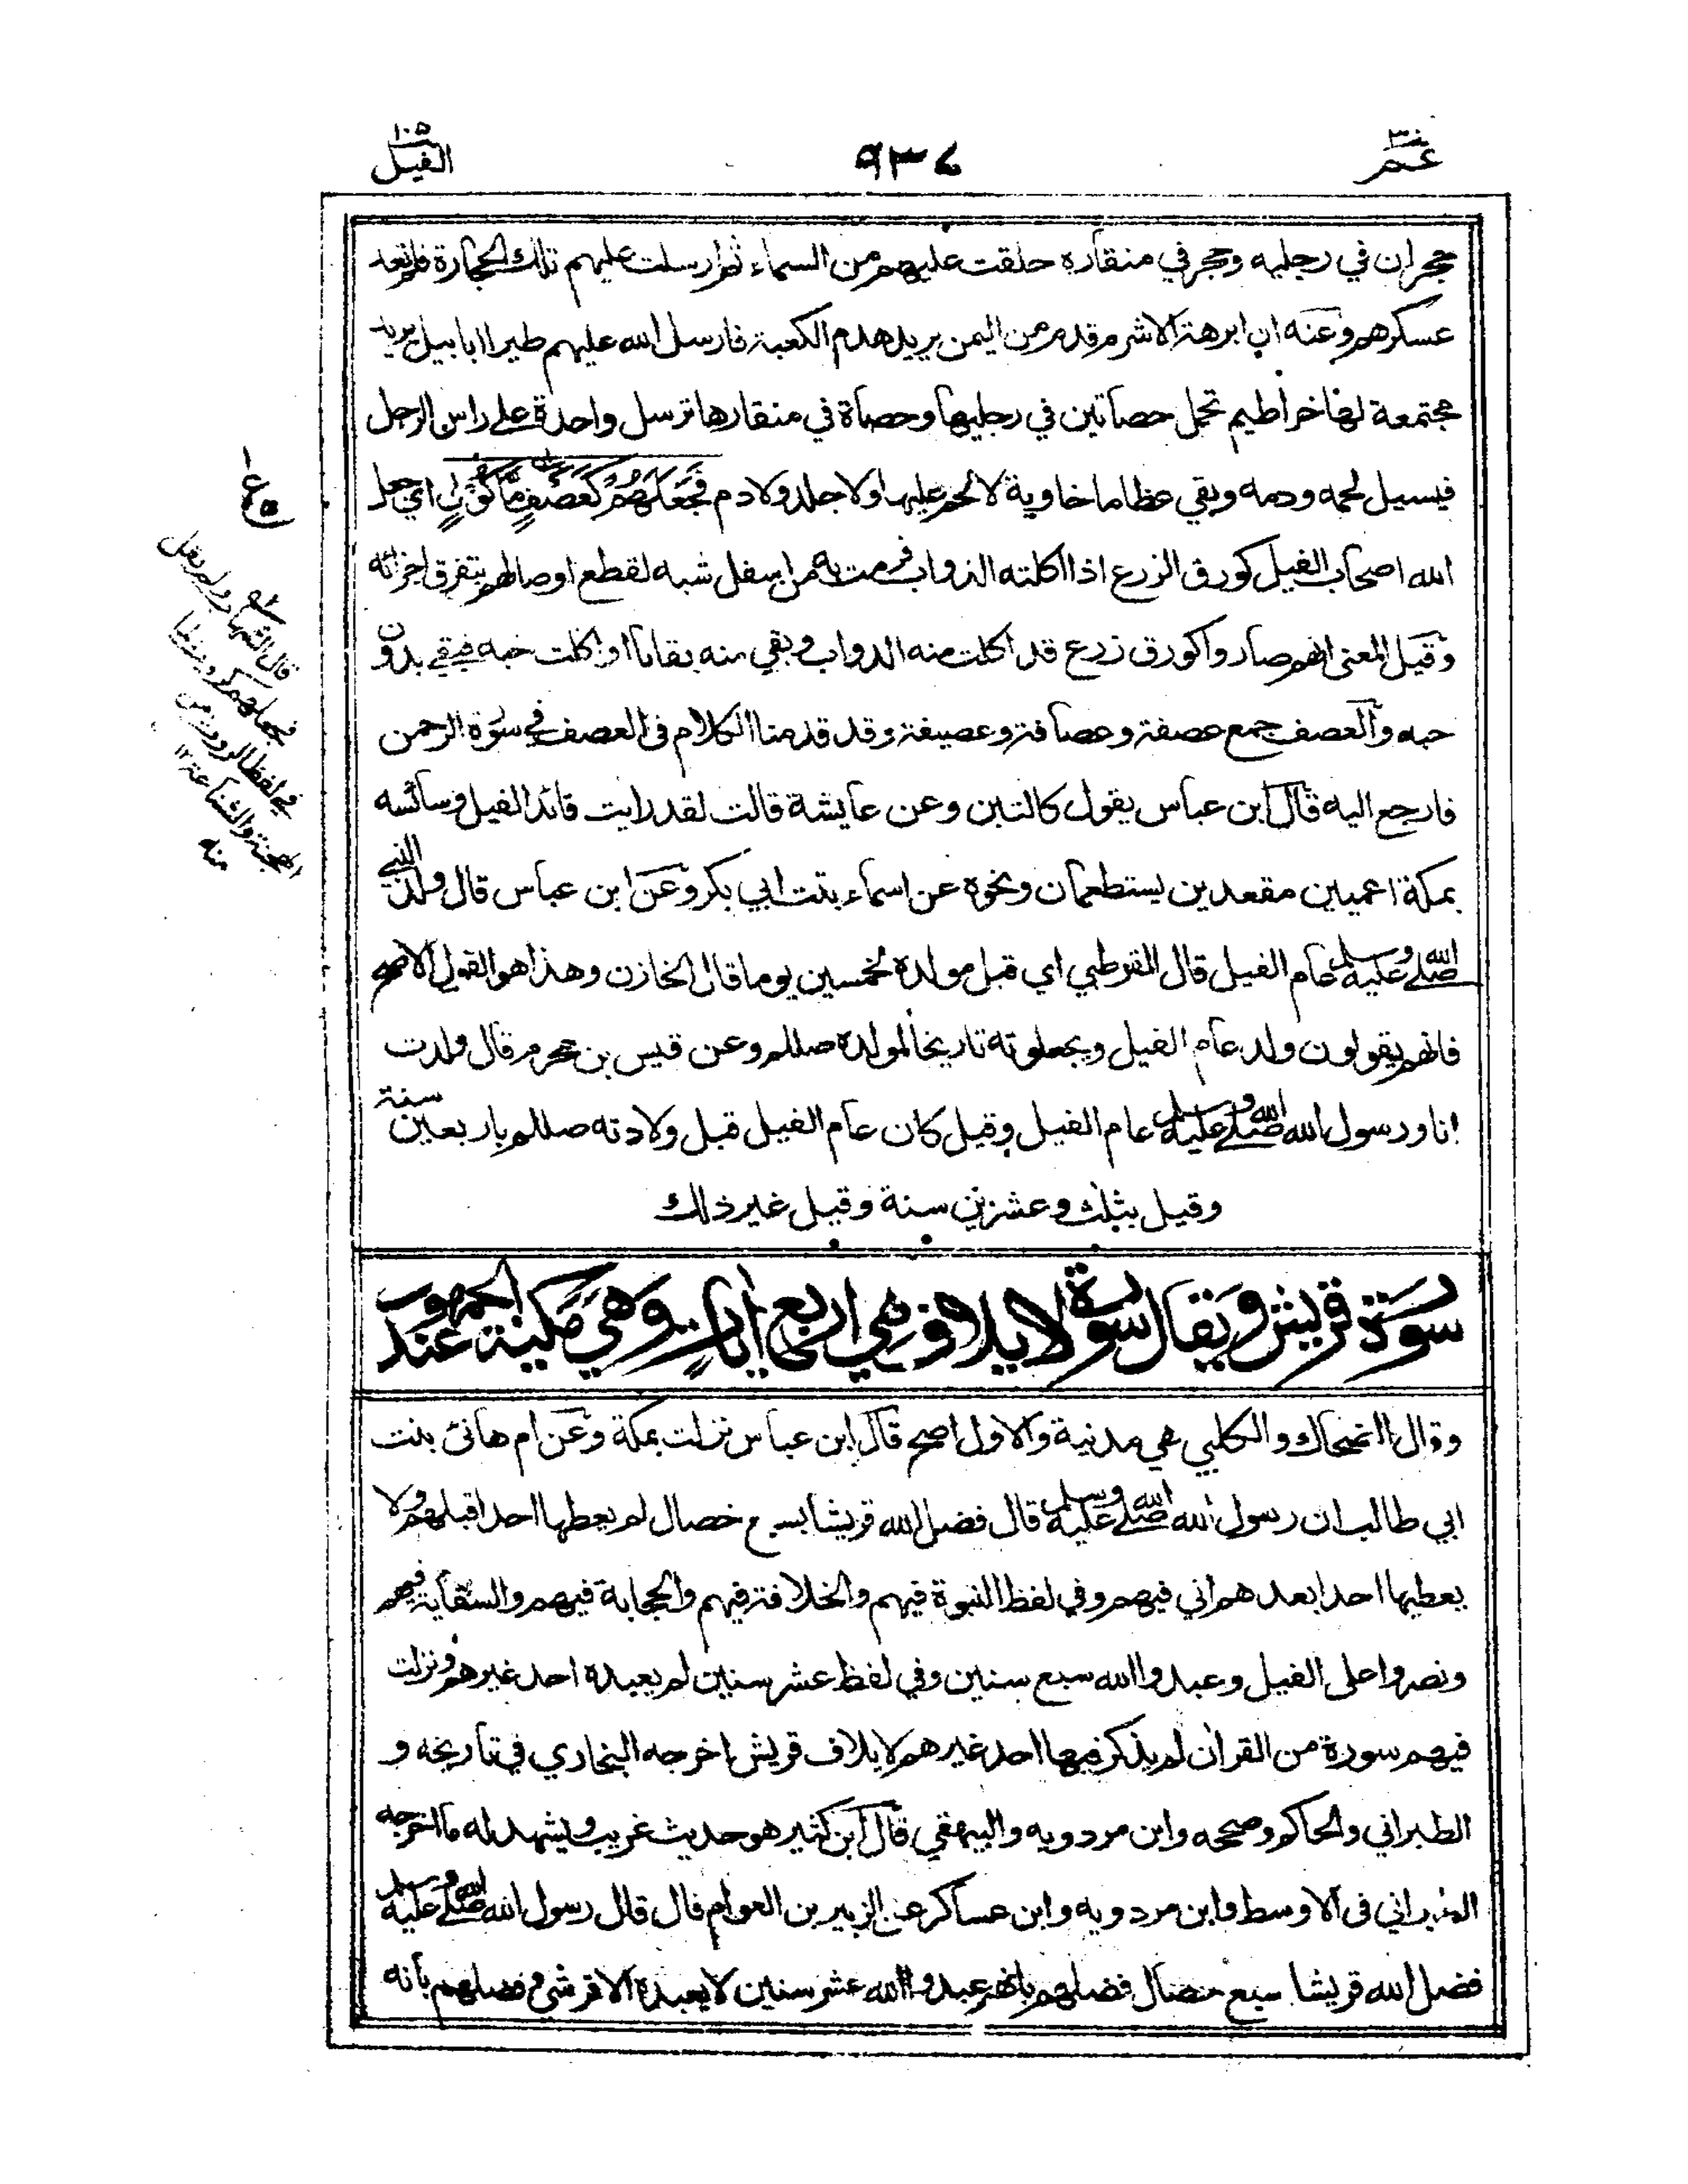 عم ٣٠
٩٣٤
الفيل ١٠٥
حجران في رجليه وحجر في منقاره حلقت عليهم من السماء ثم ارسلت عليهم تلك الحجارة فلم تعد
عسكرهم وعنه ان ابرهة الاشرم قدم من اليمن يريد هدم الكعبة فارسل الله عليهم طيرا ابابيل يريد
مجتمعة لها خراطيم تحمل حصاتين في رجليها وحصاة في منقارها ترسل واحدة على راس الرجل
فيسيل لحمه ودمه وبقي عظاما خاوية لا لحم عليها ولا جلد ولا دم فَجَعَلَهُمْ كَعَصْفٍ مَّأْكُولٍ اي جعل
الله اصحاب الفيل كورق الزرع اذا اكلته الدواب فرمت به من اسفل شبه لقطع اوصالهم بتفرق اجزائه
وقيل المعنى انهم صاروا كورق زرع قد اكلت منه الدواب وبقي منه بقايا او اكلت حبه فبقي بدون
حبه والعصف جمع عصفة وعصافة وعصيفة وقد قدمنا الكلام في العصف في سورة الرحمن
فارجع اليه قال ابن عباس يقول كالتبن وعن عايشة قالت لقد رايت قائد الفيل وسائسه
بمكة اعميين مقعدين يستطعمان ونحوه عن اسماء بنت ابي بكر وعن ابن عباس قال ولد النبي
صلى الله عليه وسلم عام الفيل قال القرطبي اي قبل مولده بخمسين يوما قال الخازن وهذا هو القول الاصح
فانهم يقولون ولد عام الفيل ويجعلونه تاريخا لمولده صللم وعن قيس بن مخرمة قال ولدت
انا ورسول الله صلى الله عليه وسلم عام الفيل وقيل كان عام الفيل قبل ولادته صللم باربعين سنة
وقيل بثلث وعشرين سنة وقيل غير ذلك
سورة قريش ويقال سورة لايلاف وهي اربع ايات وهي مكية عند الجمهور
وقال الضحاك والكلبي هي مدنية والاول اصح قال ابن عباس نزلت بمكة وعن ام هانئ بنت
ابي طالب ان رسول الله صلى الله عليه وسلم قال فضل الله قريشا بسبع خصال لم يعطها احدا قبلهم ولا
يعطيها احدا بعدهم اني فيهم وفي لفظ النبوة فيهم والخلافة فيهم والحجابة فيهم والسقاية فيهم
ونصروا على الفيل وعبدوا الله سبع سنين وفي لفظ عشر سنين لم يعبده احد غيرهم ونزلت
فيهم سورة من القران لم يذكر فيها احد غيرهم لايلاف قريش اخرجه البخاري في تاريخه و
الطبراني والحاكم وصححه وابن مردويه والبيهقي قال ابن كثير هو حديث غريب ويشهد له ما اخرجه
الطبراني في الاوسط وابن مردويه وابن عساكر عن الزبير بن العوام قال قال رسول الله صلى الله عليه وسلم
فضل الله قريشا سبع خصال فضلهم بانهم عبدوا الله عشر سنين لا يعبده الا قرشي وفضلهم بانه
قال الشهاب ولم يقل
فجعلهم كروث لما
في لفظ الروث من
الهجنة والشناعة ١٢
منه